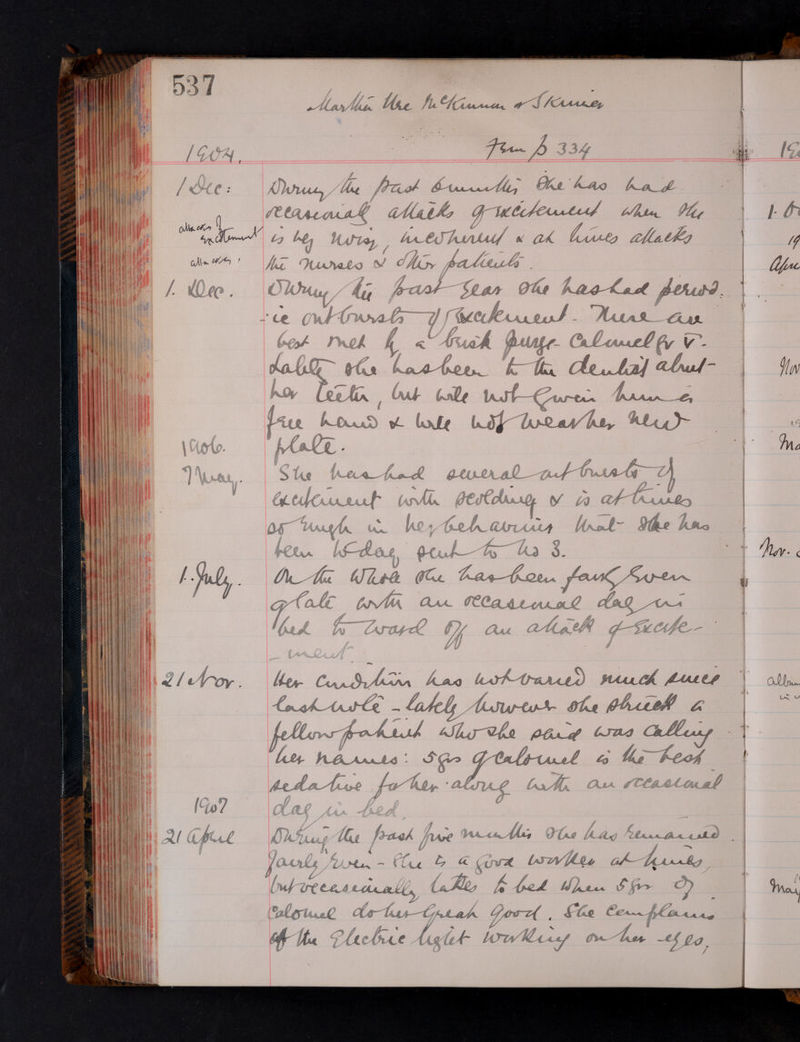 537
Martha Ure McKinnon or Skinner
1904. From p 334
1 Dec: During the past 6 months She has had
occasional attacks of excitement when She
attacks of excitement is very noisy, incoherent & at times attacks
attacks the nurses & other patients.
1. Dec. During the past year she has had period.
-ic outbursts of excitement. These are
best met by a brisk purge Calomel gr V.
Lately she has been to the dentist about
her teeth, but will not given him a
free hand & will not wear her new
1906. plate.
7 May. She has had several outbursts of
excitement with scolding & is at times
so rough in her behaviour that She has
been to-day sent to No 3.
1. July. On the Whole she has been fairly Even
of late with an occasional day in
bed to ward off an attack of Excite-
-ment.
21 Nov. Her Condition has not varied much since
last note - lately however she struck a
fellow patient who she said was Calling
her names: 5grs of Calomel is the best
sedative for her along with an occasional
1907 day in bed.
21 April During the past five months She has remained
fairly Even - She is a good worker at times,
but occasionally takes to bed when 5 grs of
Calomel do her great good. She complains
of the Electric light working on her eyes,
19
1. 
19
Nov
Nov.
May